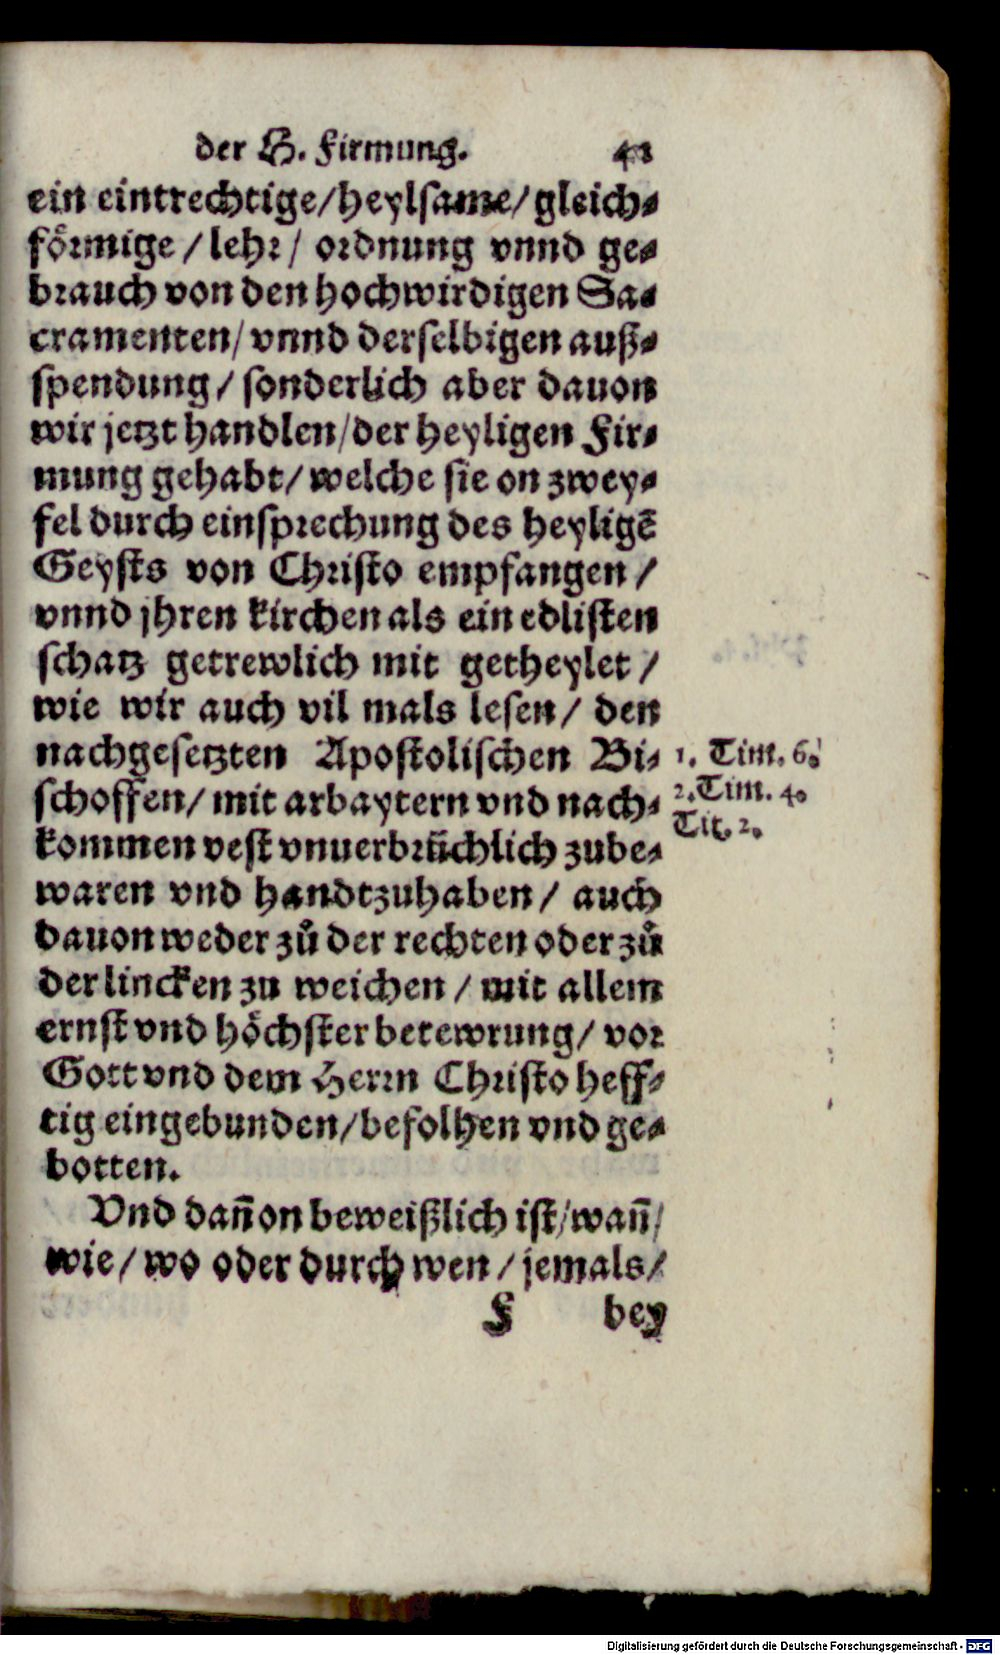 der H. Firmung. 41
ein eintrechtige/heylsame/gleich-
förmige/lehr/ ordnung vnnd ge-
brauch von den hochwirdigen Sa-
cramenten/vnnd derselbigen auß-
spendung/sonderlich aber dauon
wir jetzt handlen/der heyligen Fir-
mung gehabt/welche sie on zwey-
fel durch einsprechung des heyligẽ
Geysts von Christo empfangen/
vnnd jhren kirchen als ein edlisten
schatz getrewlich mit getheylet/
wie wir auch vil mals lesen/ den
nachgesetzten Apostolischen Bi-
schoffen/mit arbaytern vnd nach-
kommen vest vnuerbrüchlich zube-
waren vnd handtzuhaben/ auch
dauon weder zů der rechten oder zů
der lincken zu weichen/mit allem
ernst vnd höchster betewrung/ vor
Gott vnd dem Herrn Christo heff-
tig eingebunden/befolhen vnd ge-
botten.
Vnd dañ on beweißlich ist/wañ/
wie/wo oder durch wen/jemals/
F bey
1. Tim. 6.
2. Tim. 4.
Tit. 2.
Digitalisierung gefördert durch die Deutsche Forschungsgemeinschaft - DFG